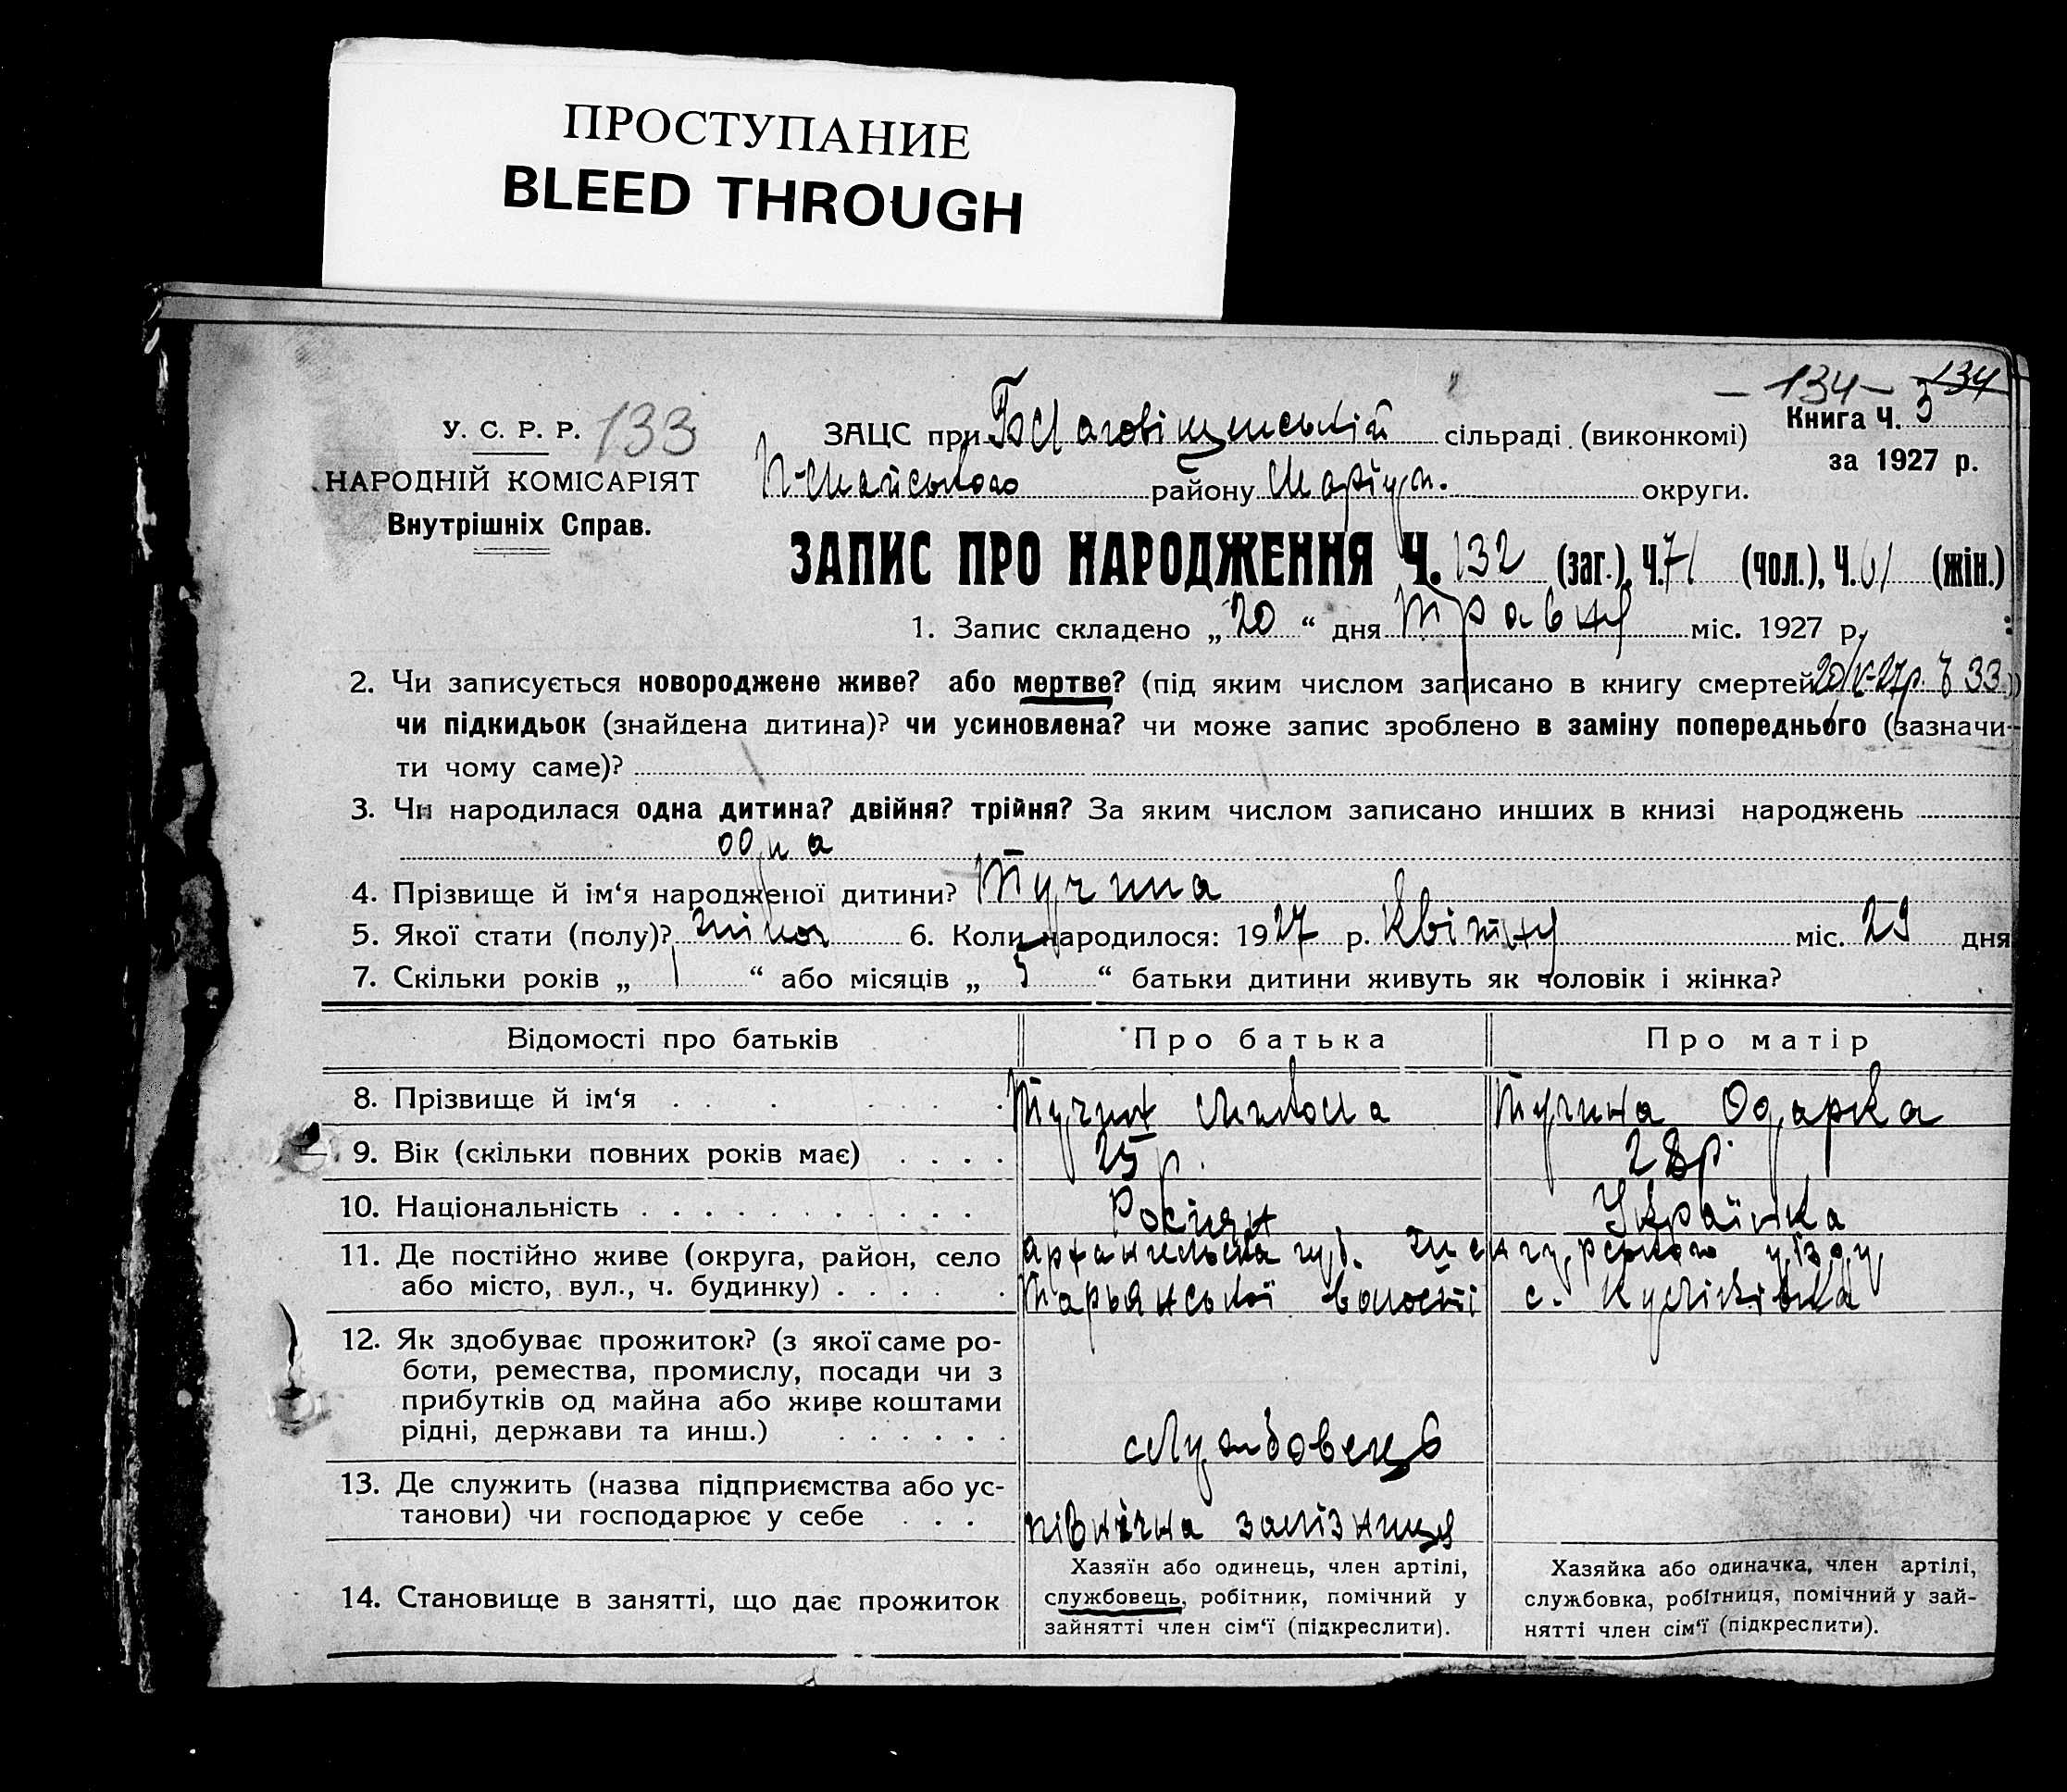 ПРОСТУПАНИЕ
BLEED THROUGH
- 134 - 134
У. С. Р. Р. 133
НАРОДНІЙ КОМІСАРІЯТ
Внутрішніх Справ.
ЗАЦС при Благовіщенській сільраді (виконкомі)
Книга Ч. 5
за 1927 р.
П-Майського району Маріуп. округи.
ЗАПИС ПРО НАРОДЖЕННЯ Ч. 132 (заг.), Ч. 71 (чол.), Ч. 61 (жін.)
1. Запис складено „ 20 “ дня Травня міс. 1927 р.
2. Чи записується новороджене живе? або мертве? (під яким числом записано в книгу смертей 20/V-27р. Ч 33)
чи підкидьок (знайдена дитина)? чи усиновлена? чи може запис зроблено в заміну попереднього (зазначи-
ти чому саме)?
3. Чи народилася одна дитина? двійня? трійня? За яким числом записано инших в книзі народжень
одна
4. Прізвище й ім‘я народженої дитини? Тучина
5. Якої стати (полу)? жіноч 6. Коли народилося: 1927 р. Квітня міс. 29 дня
7. Скільки років „ 1 “ або місяців „ 5 “ батьки дитини живуть як чоловік і жінка?
Відомості про батьків Про батька Про матір
8. Прізвище й ім‘я Тучин Микола Тучина Одарка
9. Вік (скільки повних років має) 25 р. 28 р.
10. Національність Росіян Українка
11. Де постійно живе (округа, район, село Архангельска губ. Шенгурського уїзду
або місто, вул., ч. будинку) волості с.
12. Як здобуває прожиток? (з якої саме ро-
боти, ремества, промислу, посади чи з
прибутків од майна або живе коштами
рідні, держави та инш.) службовець
13. Де служить (назва підприємства або ус-
танови) чи господарює у себе північна залізниця
14. Становище в занятті, що дає прожиток
Хазяїн або одинець, член артілі,
службовець, робітник, помічний у
зайнятті член сім‘ї (підкреслити).
Хазяйка або одиначка, член артілі,
службовка, робітниця, помічний у зай-
нятті член сім‘ї (підкреслити).